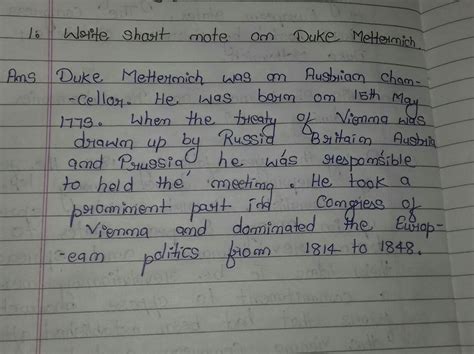 1. Write short note on Duke Metternich.
Ans Duke Metternich was an Austrian chan-
-cellor. He was born on 15th May
1773. When the treaty of Vienna was
drawn up by Russia Britain Austria
and Prussia he was responsible
to held the meeting. He took a
prominent part in Congress of
Vienna and dominated the Europ-
-ean politics from 1814 to 1848.